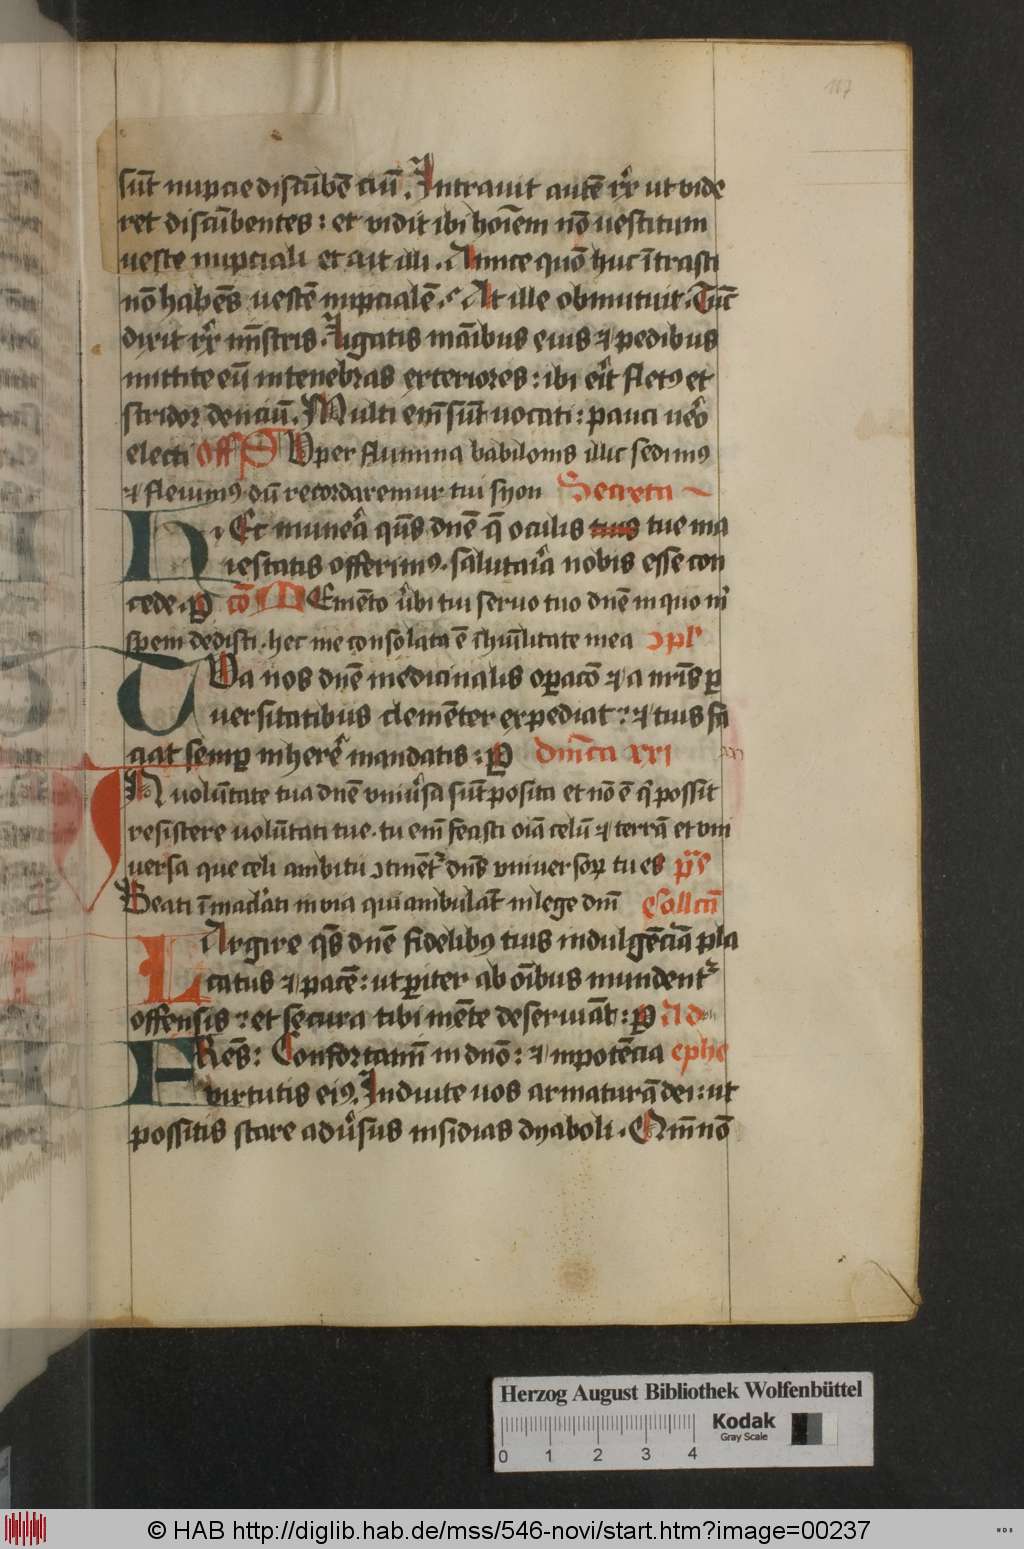 117
sūt nupcie discūbē ciū. Intrauit autē rex ut vide
ret discūbentes: et vidit ibi hoīem nō uestitum
ueste nupciali et ait illi. Amice quō huc ītrasti
nō habēs uestē nupcialē. At ille obmutuit. Tūc
dixit rex mīstris. Ligatis māibus eius ⁊ pedibus
mittite eū in tenebras exteriores: ibi eīt fletꝯ et
stridor dentiū. Multi em̄ sūt uocati: pauci ūo
electi Off S Vper flumina babilonis illic sedimꝯ
⁊ fleuimꝯ dū recordaremur tui syon Secreta
H Ec munera q̄s dn̄e q̄ oculis tuis tue ma
iestatis offerimꝯ. salutaria nobis esse con
cede. P cō M Emēto ūbi tui seruo tuo dn̄e in quo m
spem dedisti. hec me consolata ē ī hūilitate mea ↄpl
T Va nos dn̄e medicinalis opacō ⁊ a nr̄is ꝑ
uersitatibus clemēter expediat: ⁊ tuis fa
ciat semꝑ inherē mandatis: P Dn̄ica xxi
xxi
IN volūtate tua dn̄e vniūsa sūt posita et nō ē q possit
resistere volūtati tue. tu em̄ fecisti oīa celū ⁊ terrā et vni
uersa que celi ambitu ↄtinent dn̄s vniuersoꝝ tu es ps
Beati īmaclati in via qui ambulāt in lege dn̄i
L Argire q̄s dn̄e fidelibꝯ tuis indulgēciā pla
catus ⁊ pacē: ut pariter ab oībus mundent
offensis: et secura tibi mēte deseruiāt: P Ad
F Rēs: Confortamī in dn̄o: ⁊ in potēcia ephe
virtutis eiꝯ. Induite uos armaturā dei: ut
possitis stare adūsus insidias dyaboli. Qm̄ nō
Herzog August Bibliothek Wolfenbüttel
Kodak
Gray Scale
0 1 2 3 4
© HAB http://diglib.hab.de/mss/546-novi/start.htm?image=00237